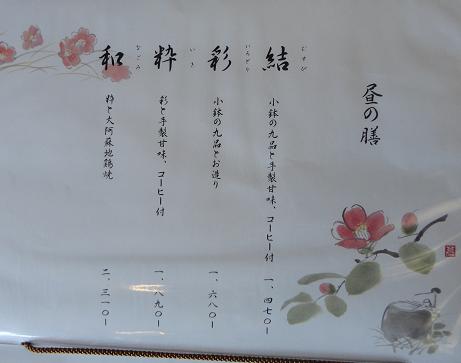 昼の膳
結
むすび
小鉢の九品と手製甘味、コーヒー付
一、四七〇ー
彩
いろどり
小鉢の九品とお造り
一、六八〇ー
粋
いき
彩と手製甘味、コーヒー付
一、八九〇ー
和
なごみ
粋と大阿蘇地鶏焼
二、三一〇ー